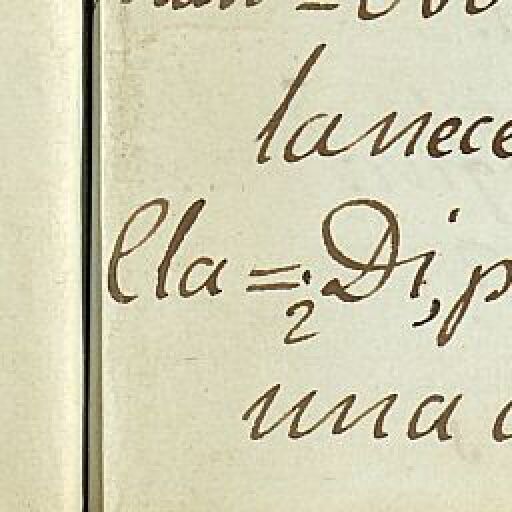 lanece
lla = Di, p
2
una